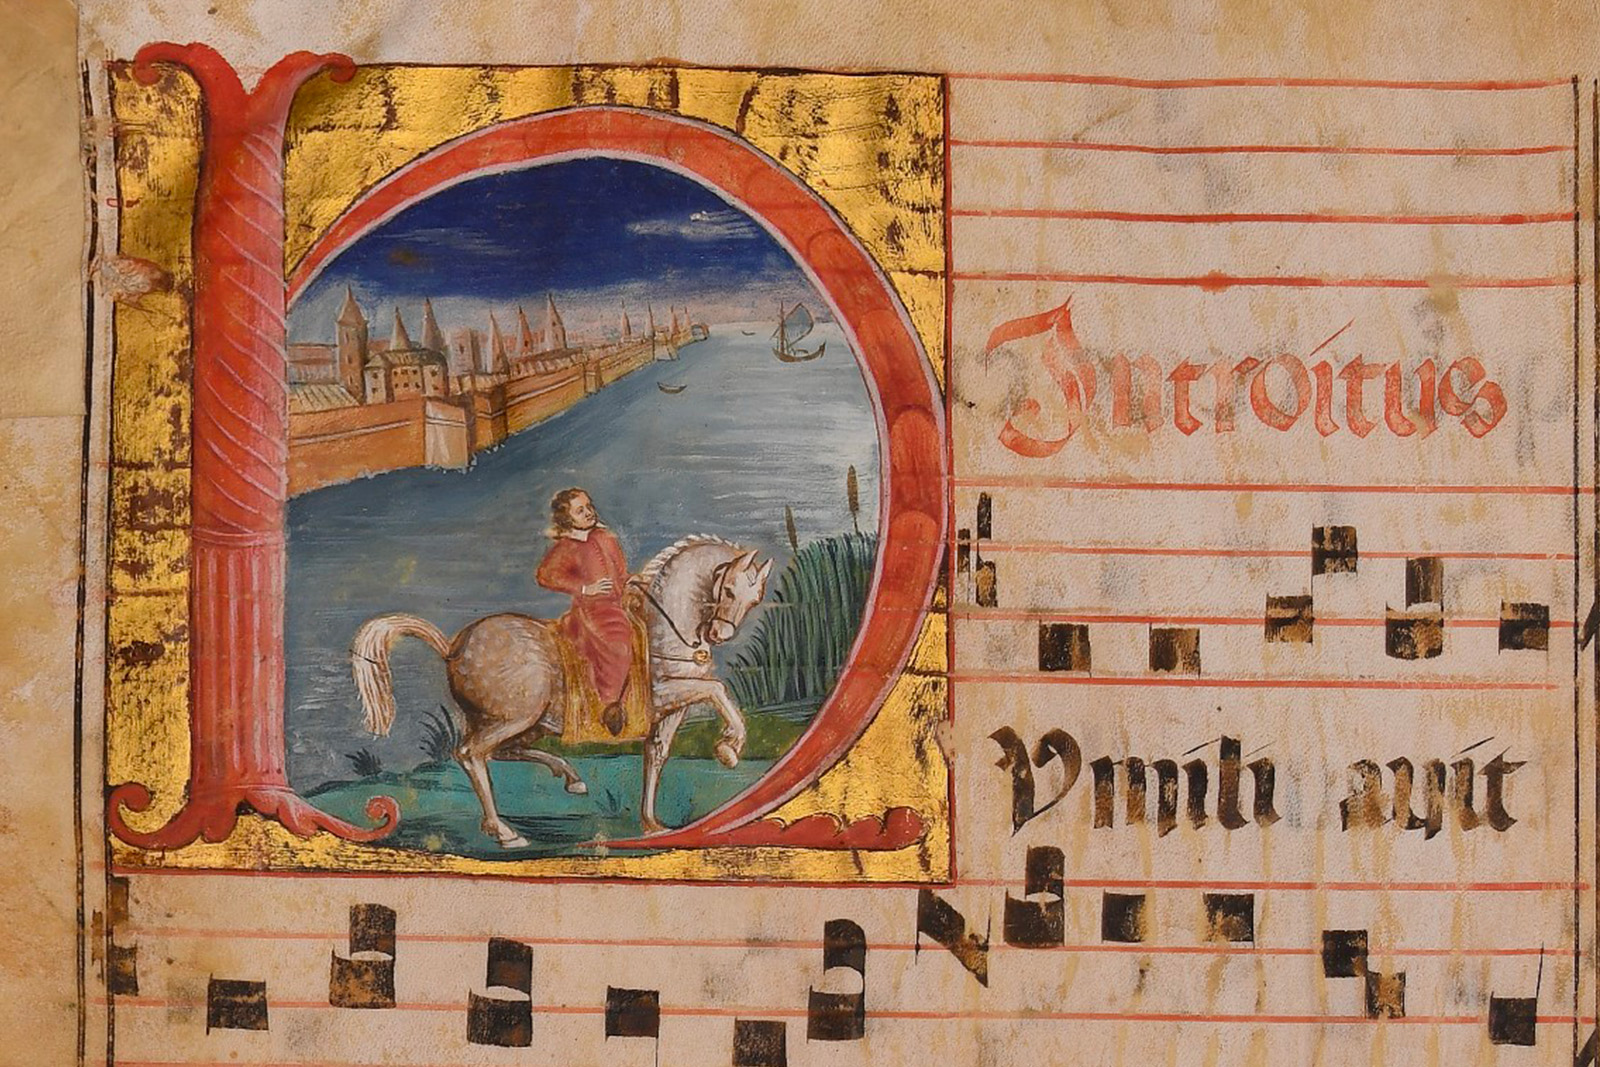 Introitus
HVmili auit